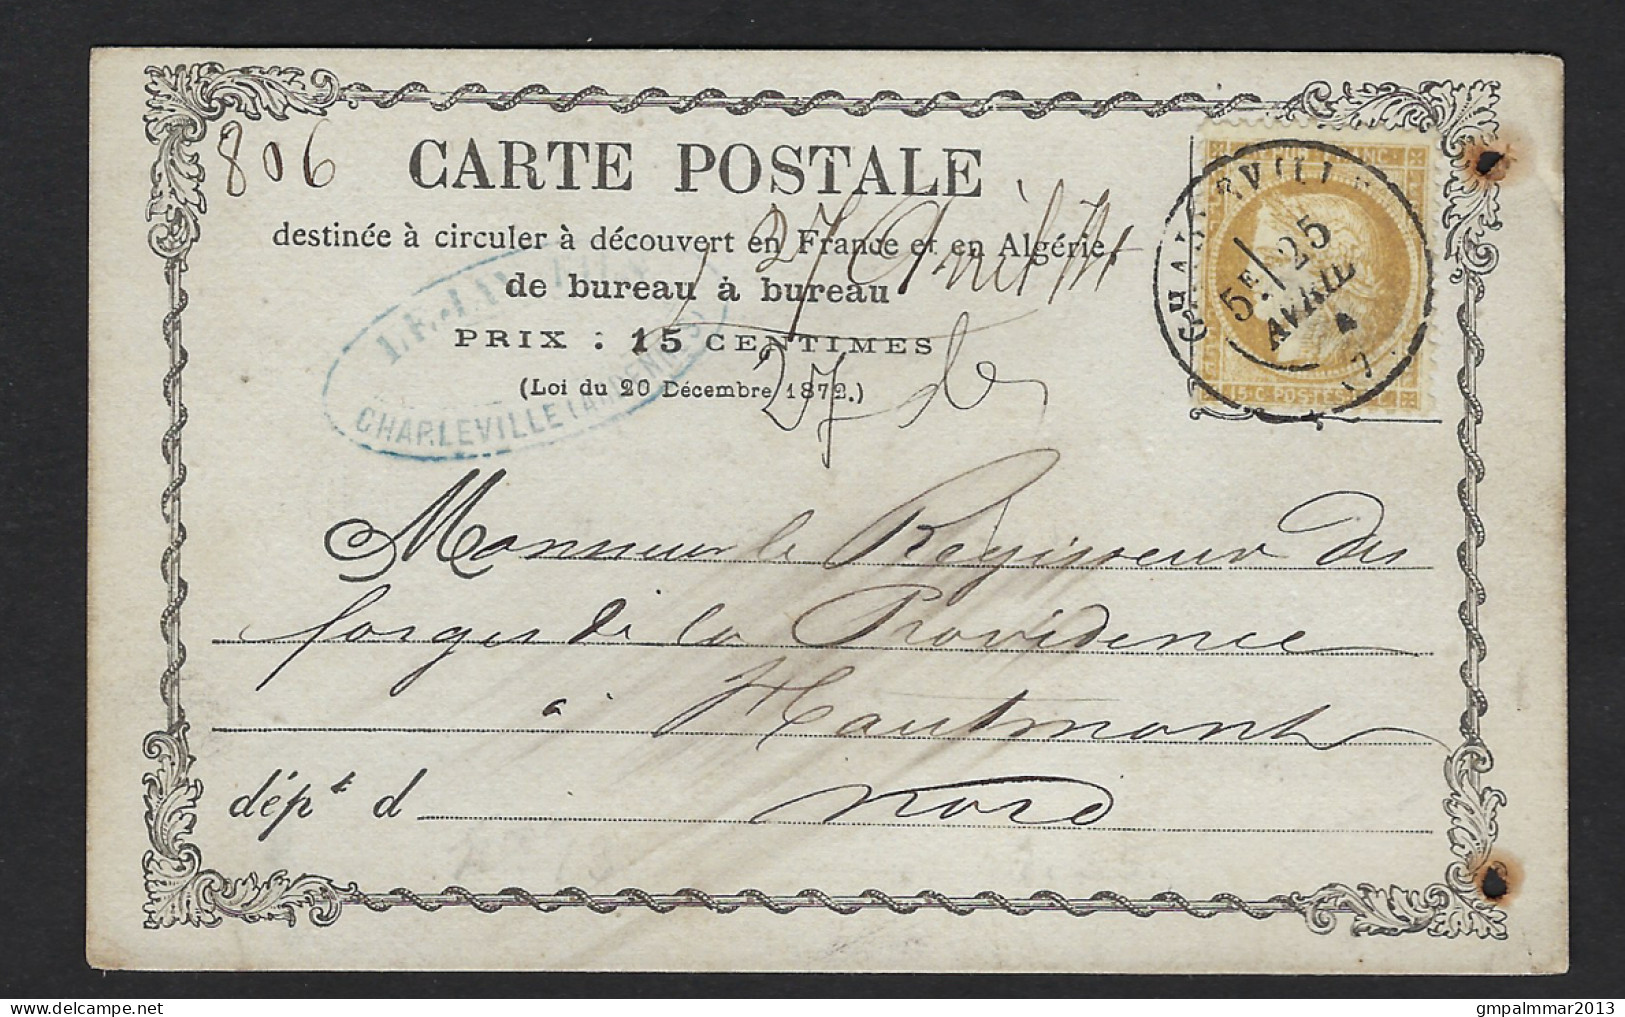 806
CARTE POSTALE
destinée à circuler à découvert en France et en Algérie,
de bureau à bureau
PRIX : 15 CENTIMES
(Loi du 20 Décembre 1872.)
27 Avril
27
CHARLEVILLE (ARDENNES)
CHARLEVILLE
5E 25
AVRIL
FRANC
15 C. POSTES
Monsieur le Regisseur des
forges de la Providence
à Hautmont
dépt d Nord
delcampe.net
gmpalmmar2013